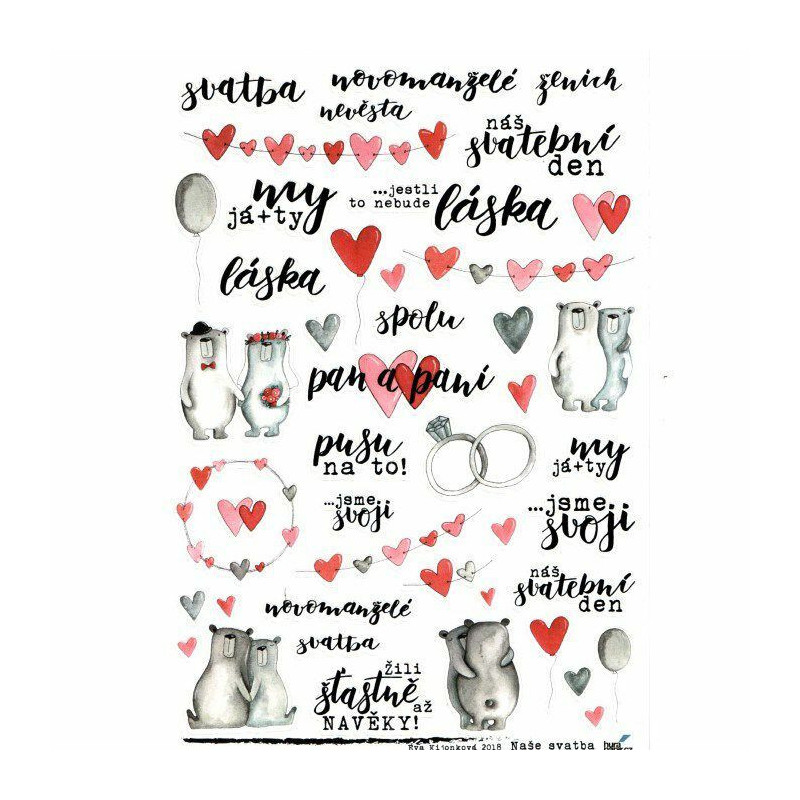 svatba
novomanželé
ženich
nevěsta
náš
svatební
den
my
já+ty
...jestli
to nebude
láska
láska
spolu
pan a paní
pusu
na to!
my
já+ty
...jsme
svoji
...jsme
svoji
náš
svatební
den
novomanželé
svatba
Žili
šťastně
až
NAVĚKY!
Eva Kijonková 2018 Naše svatba